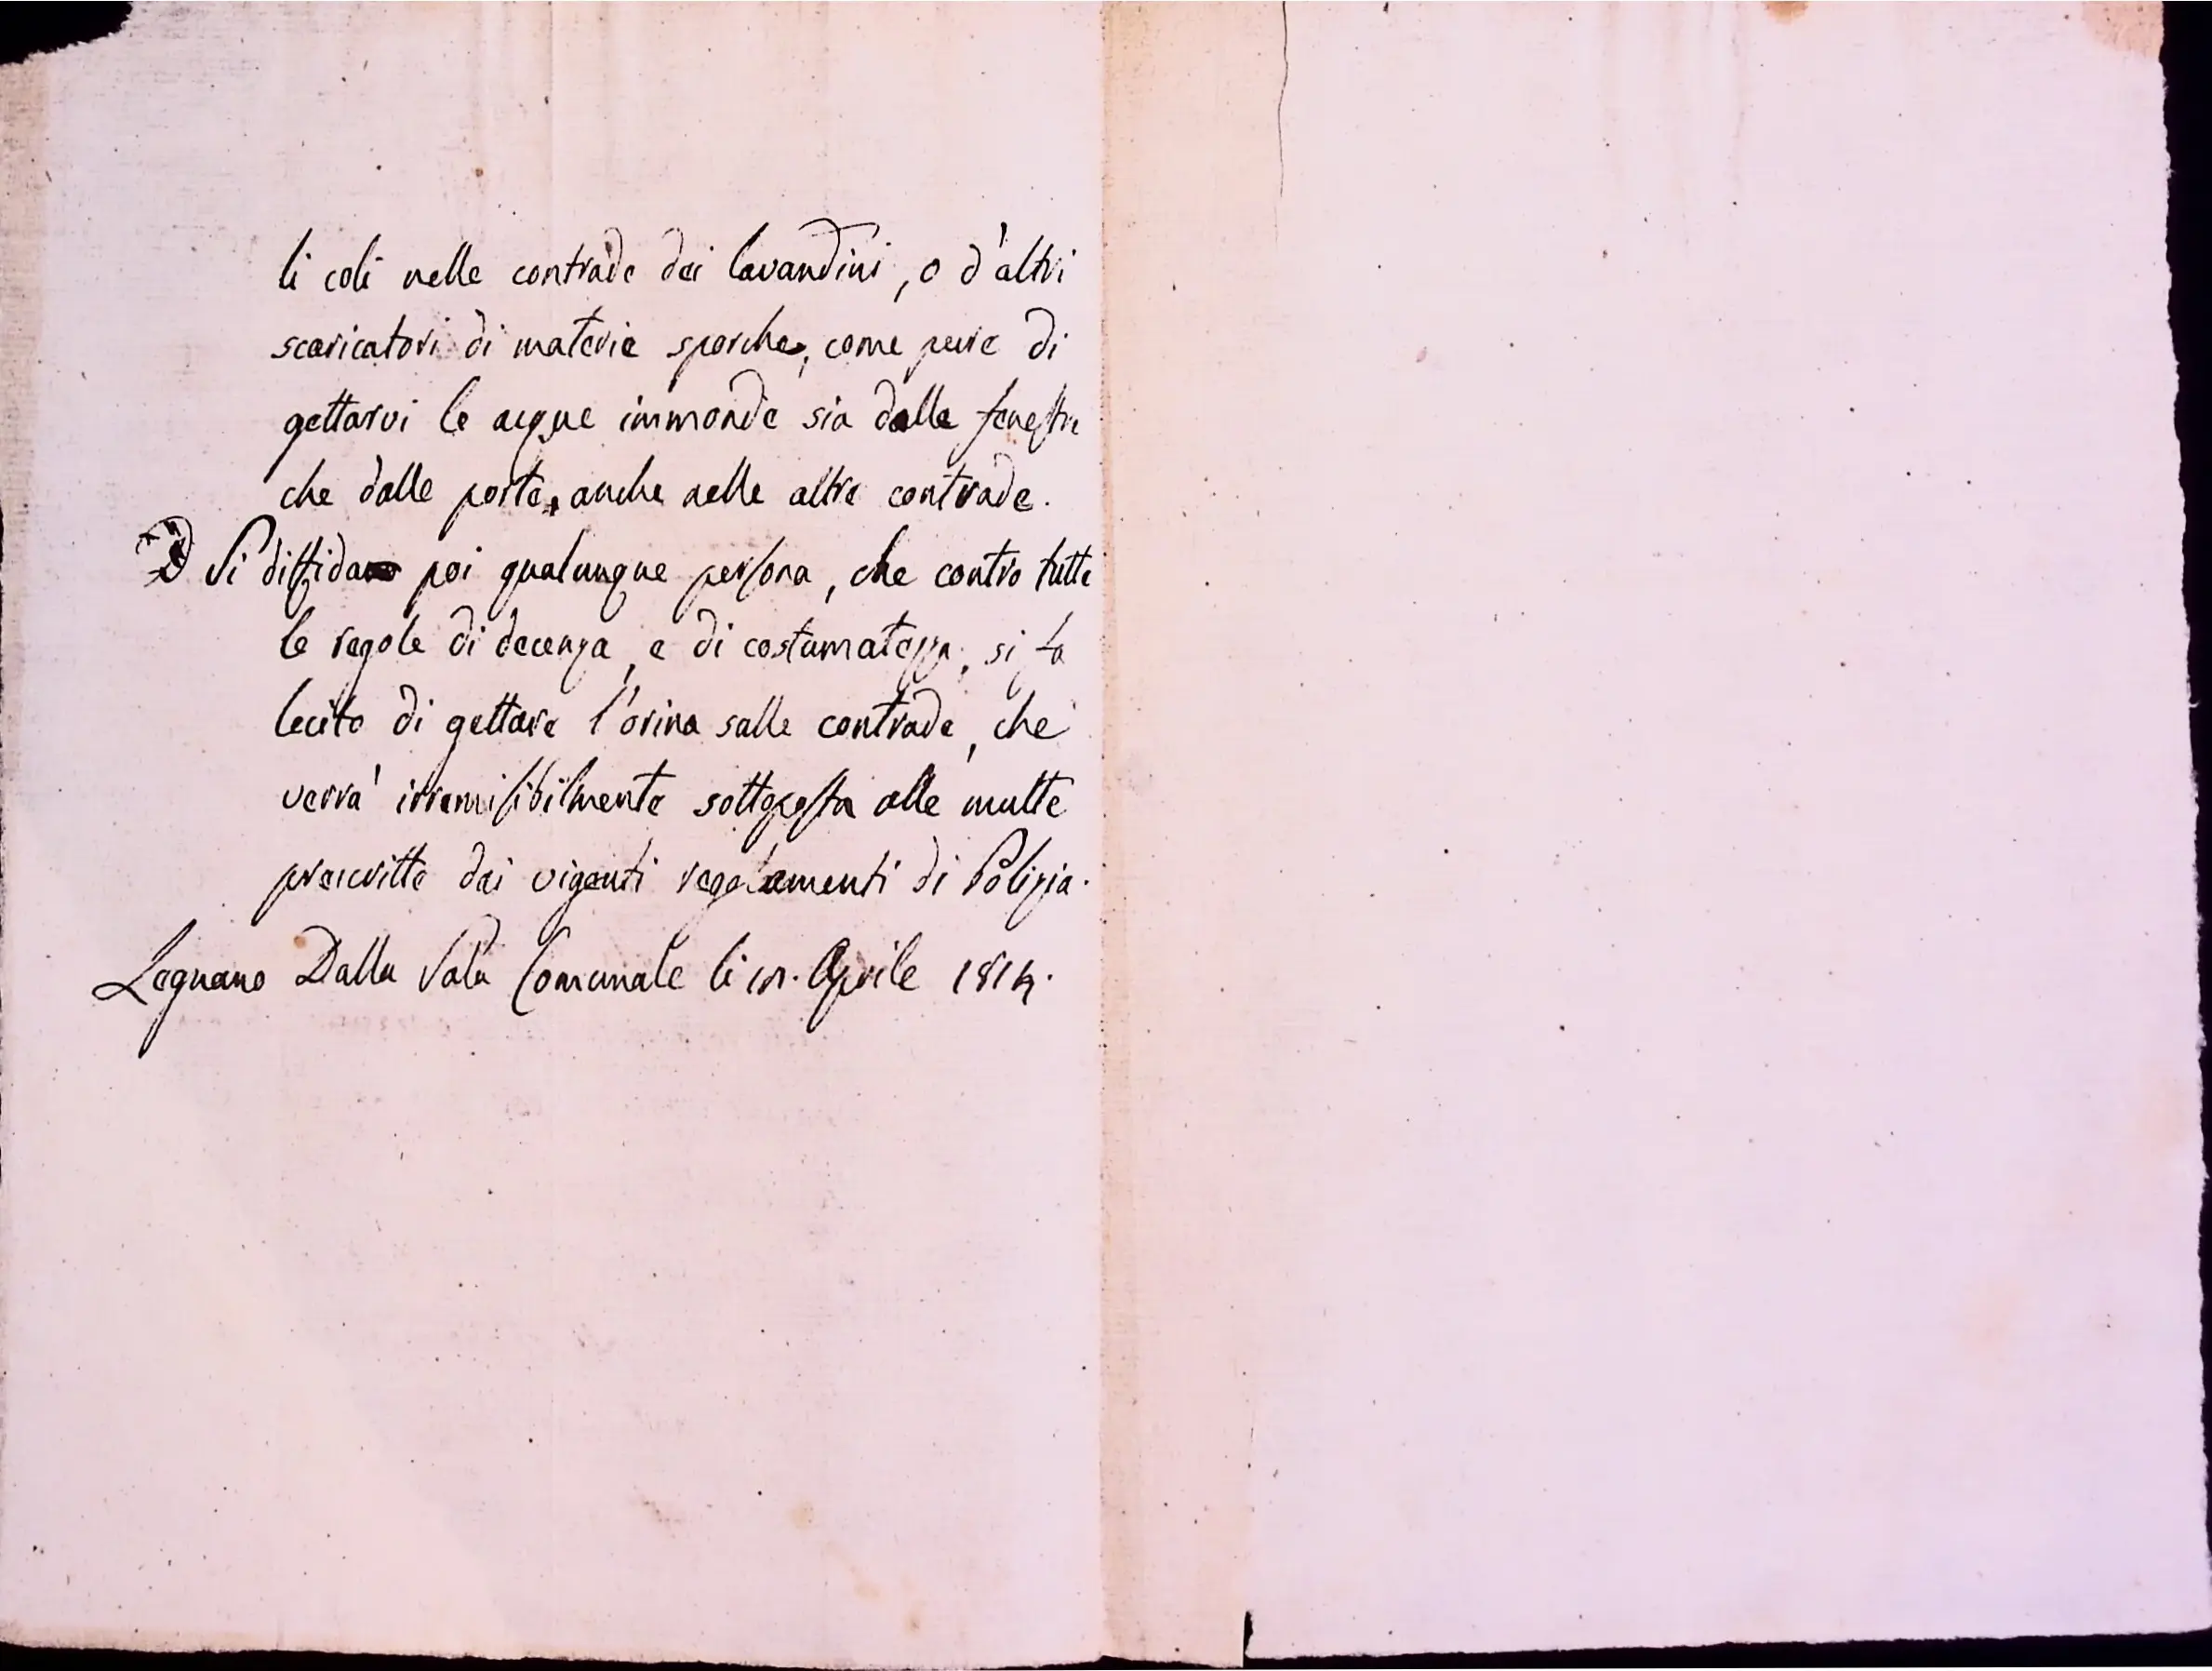 li coli nelle contrade dei lavandini, o d'altri
scaricatori di materie sporche, come pure di
gettarvi le acque immonde sia dalle fenestre
che dalle porte, anche nelle altre contrade.
Si diffida poi qualunque persona, che contro tutte
le regole di decenza, e di costumatezza, si fa
lecito di gettare l'orina sulle contrade, che
verrà irremisibilmente sottoposta alle multe
prescritte dai vigenti regolamenti di Polizia.
Legnano Dalla Sala Comunale li Aprile